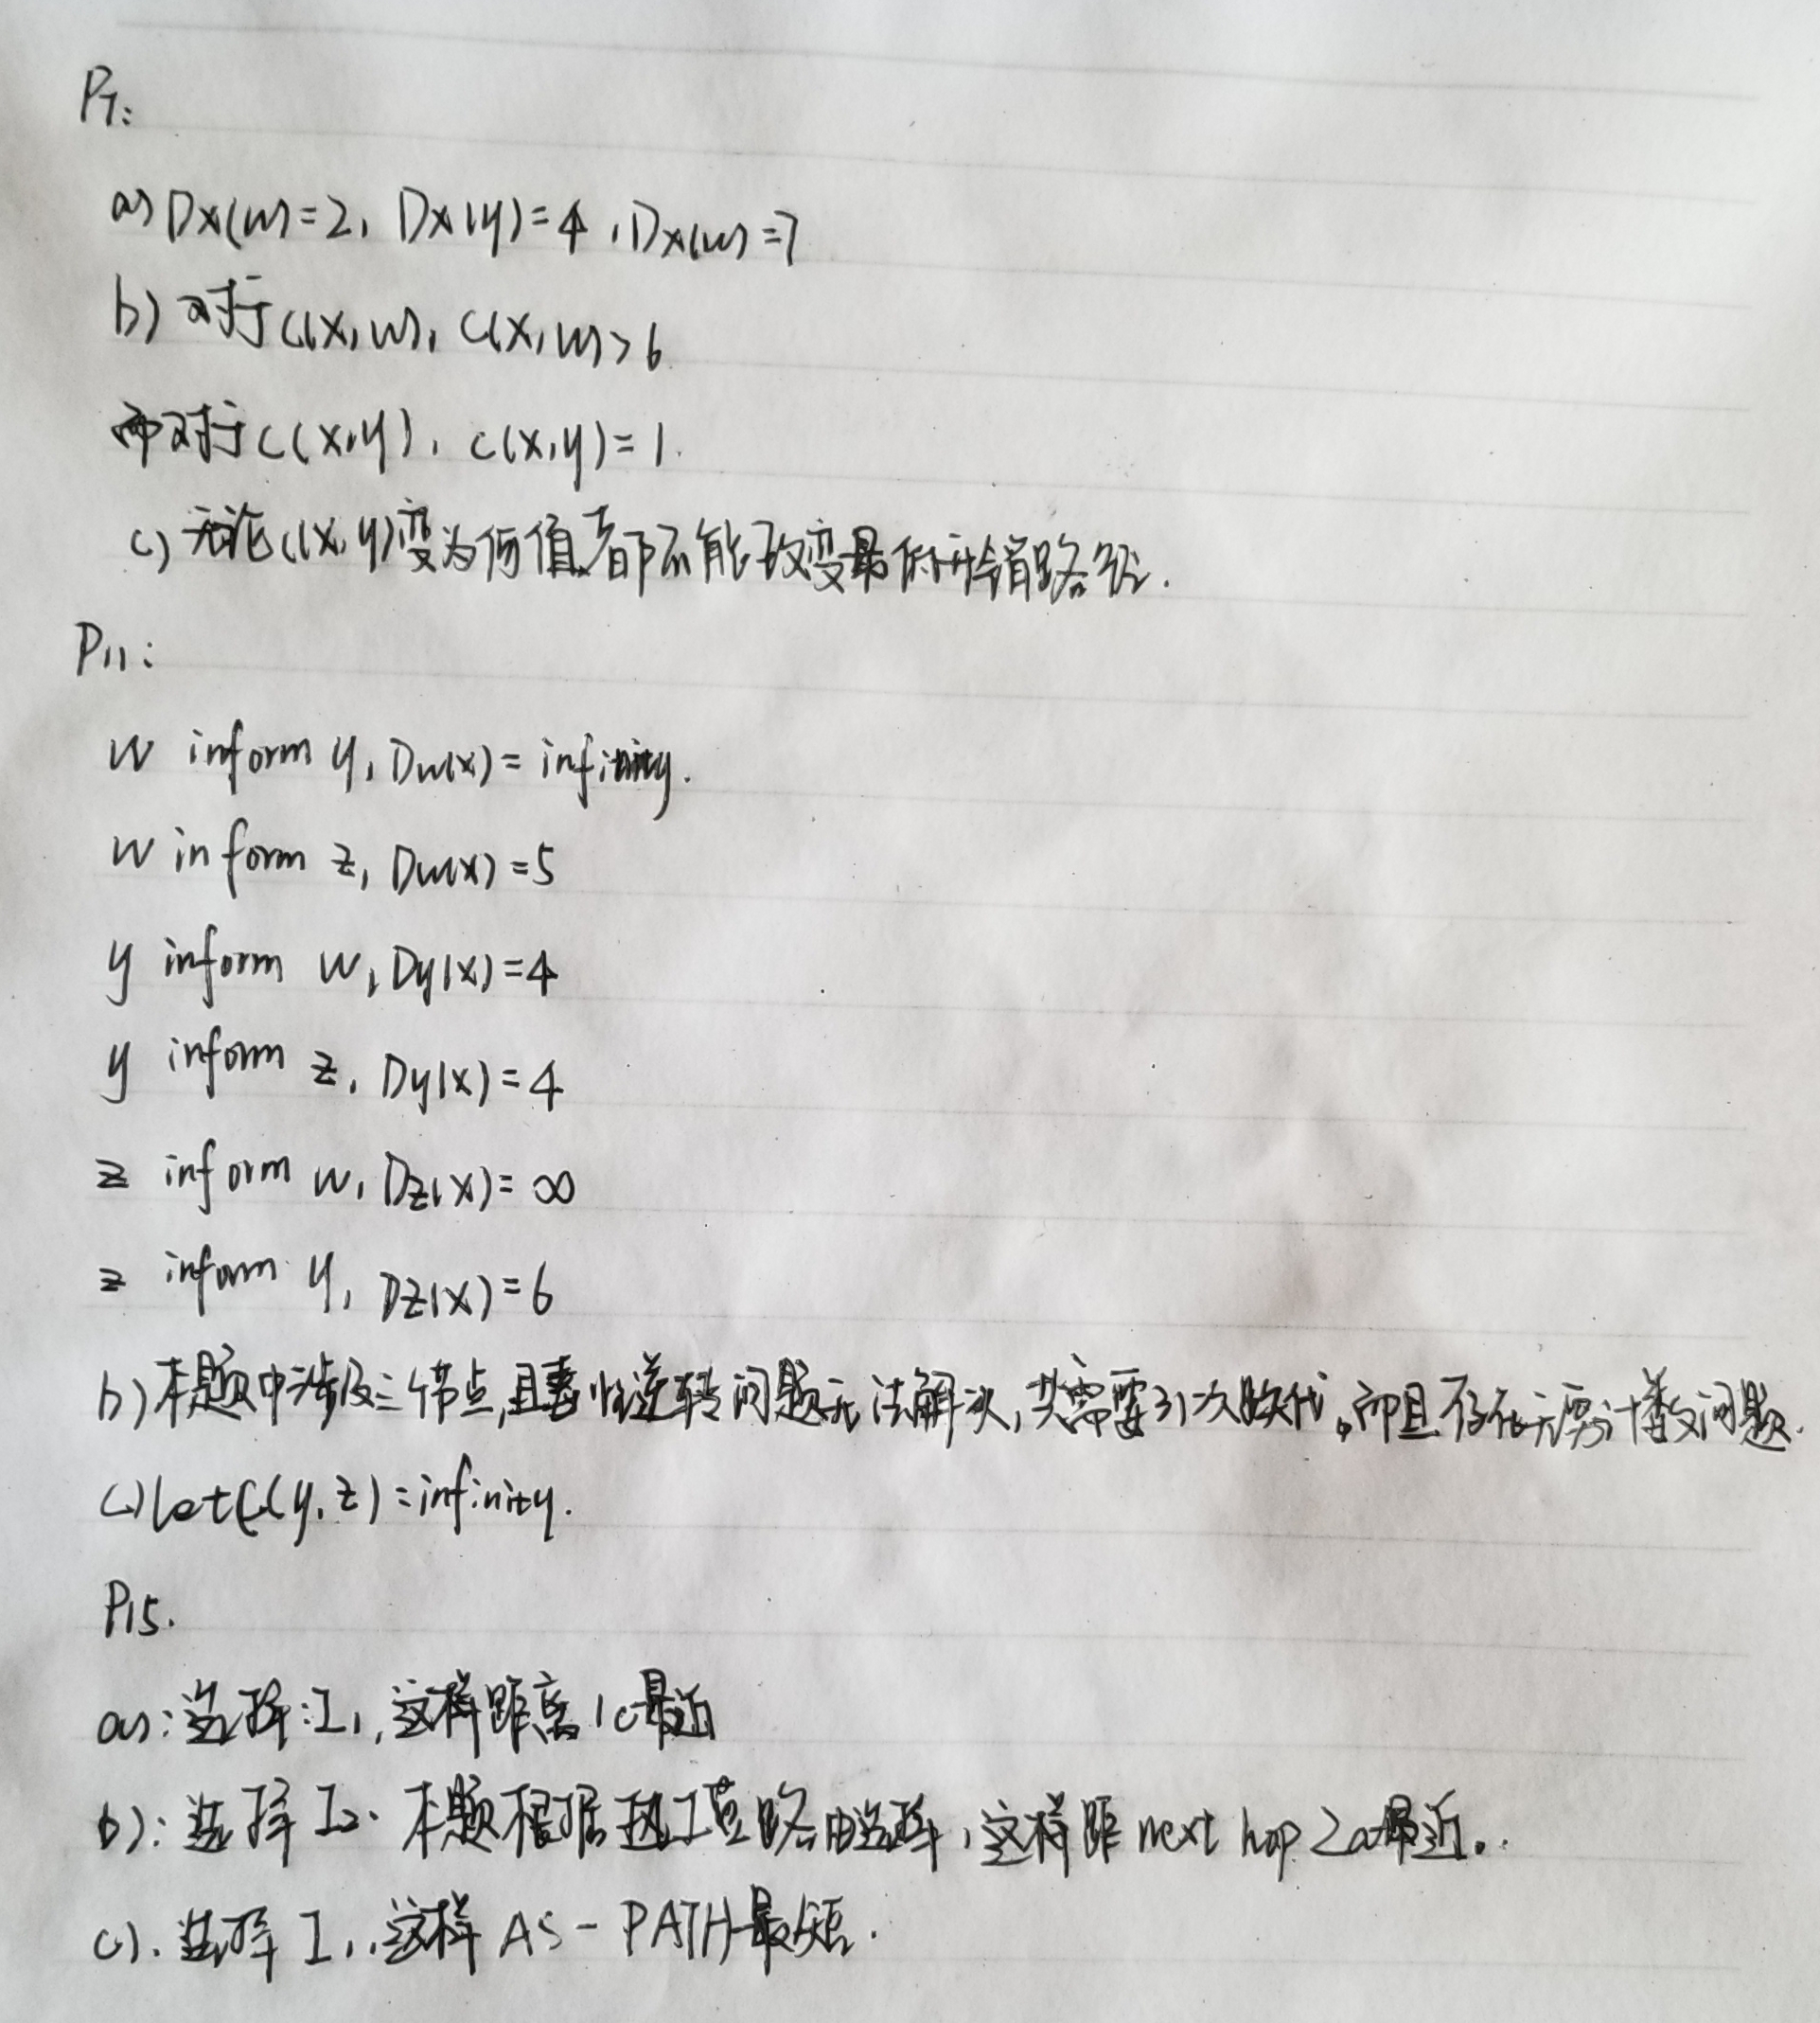 P7:
a) Dx(w)=2, Dx(y)=4, Dx(u)=7
b) 对于c(x,w), c(x,w)>6
而对于c(x,y), c(x,y)=1.
c) 无论c(x,y)变为何值都不能改变最低开销路径.
P11:
w inform y, Dw(x)= infinity.
w inform z, Dw(x)=5
y inform w, Dy(x)=4
y inform z, Dy(x)=4
z inform w, Dz(x)=∞
z inform y, Dz(x)=6
b) 本题中涉及三个节点,且毒性逆转问题无法解决,共需要31次迭代。而且存在无穷计数问题.
c) let C(y,z)=infinity.
P15.
a): 选择: I1, 这样距离1c最近
b): 选择 I2. 本题根据热土豆路由选择, 这样距 next hop 2a最近.
c). 选择 I1, 这样 AS-PATH最短.